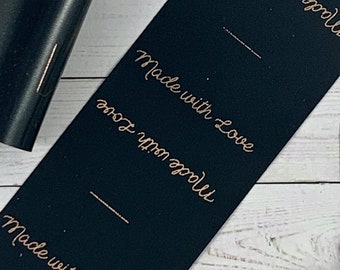 Made with Love
Made with Love
Made with Love
Made with